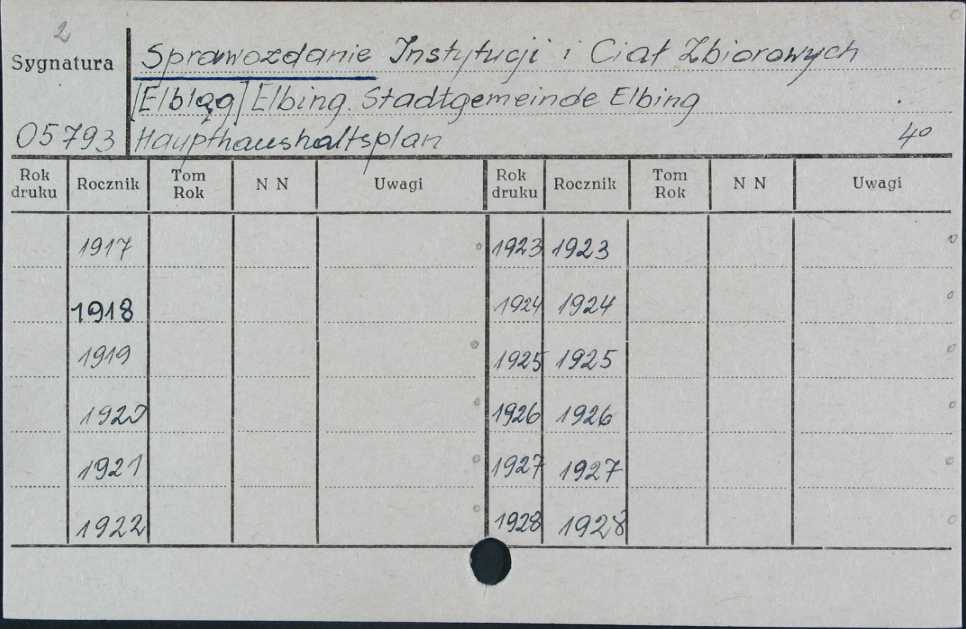 2
Sygnatura Sprawozdanie Instytucji i Ciał Zbiorowych
[Elbląg] Elbing. Stadtgemeinde Elbing
05793 Haupthaushaltsplan 4°
Rok druku Rocznik Tom Rok N N Uwagi Rok druku Rocznik Tom Rok N N Uwagi
1917 1923 1923
1918 1924 1924
1919 1925 1925
1920 1926 1926
1921 1927 1927
1922 1928 1928